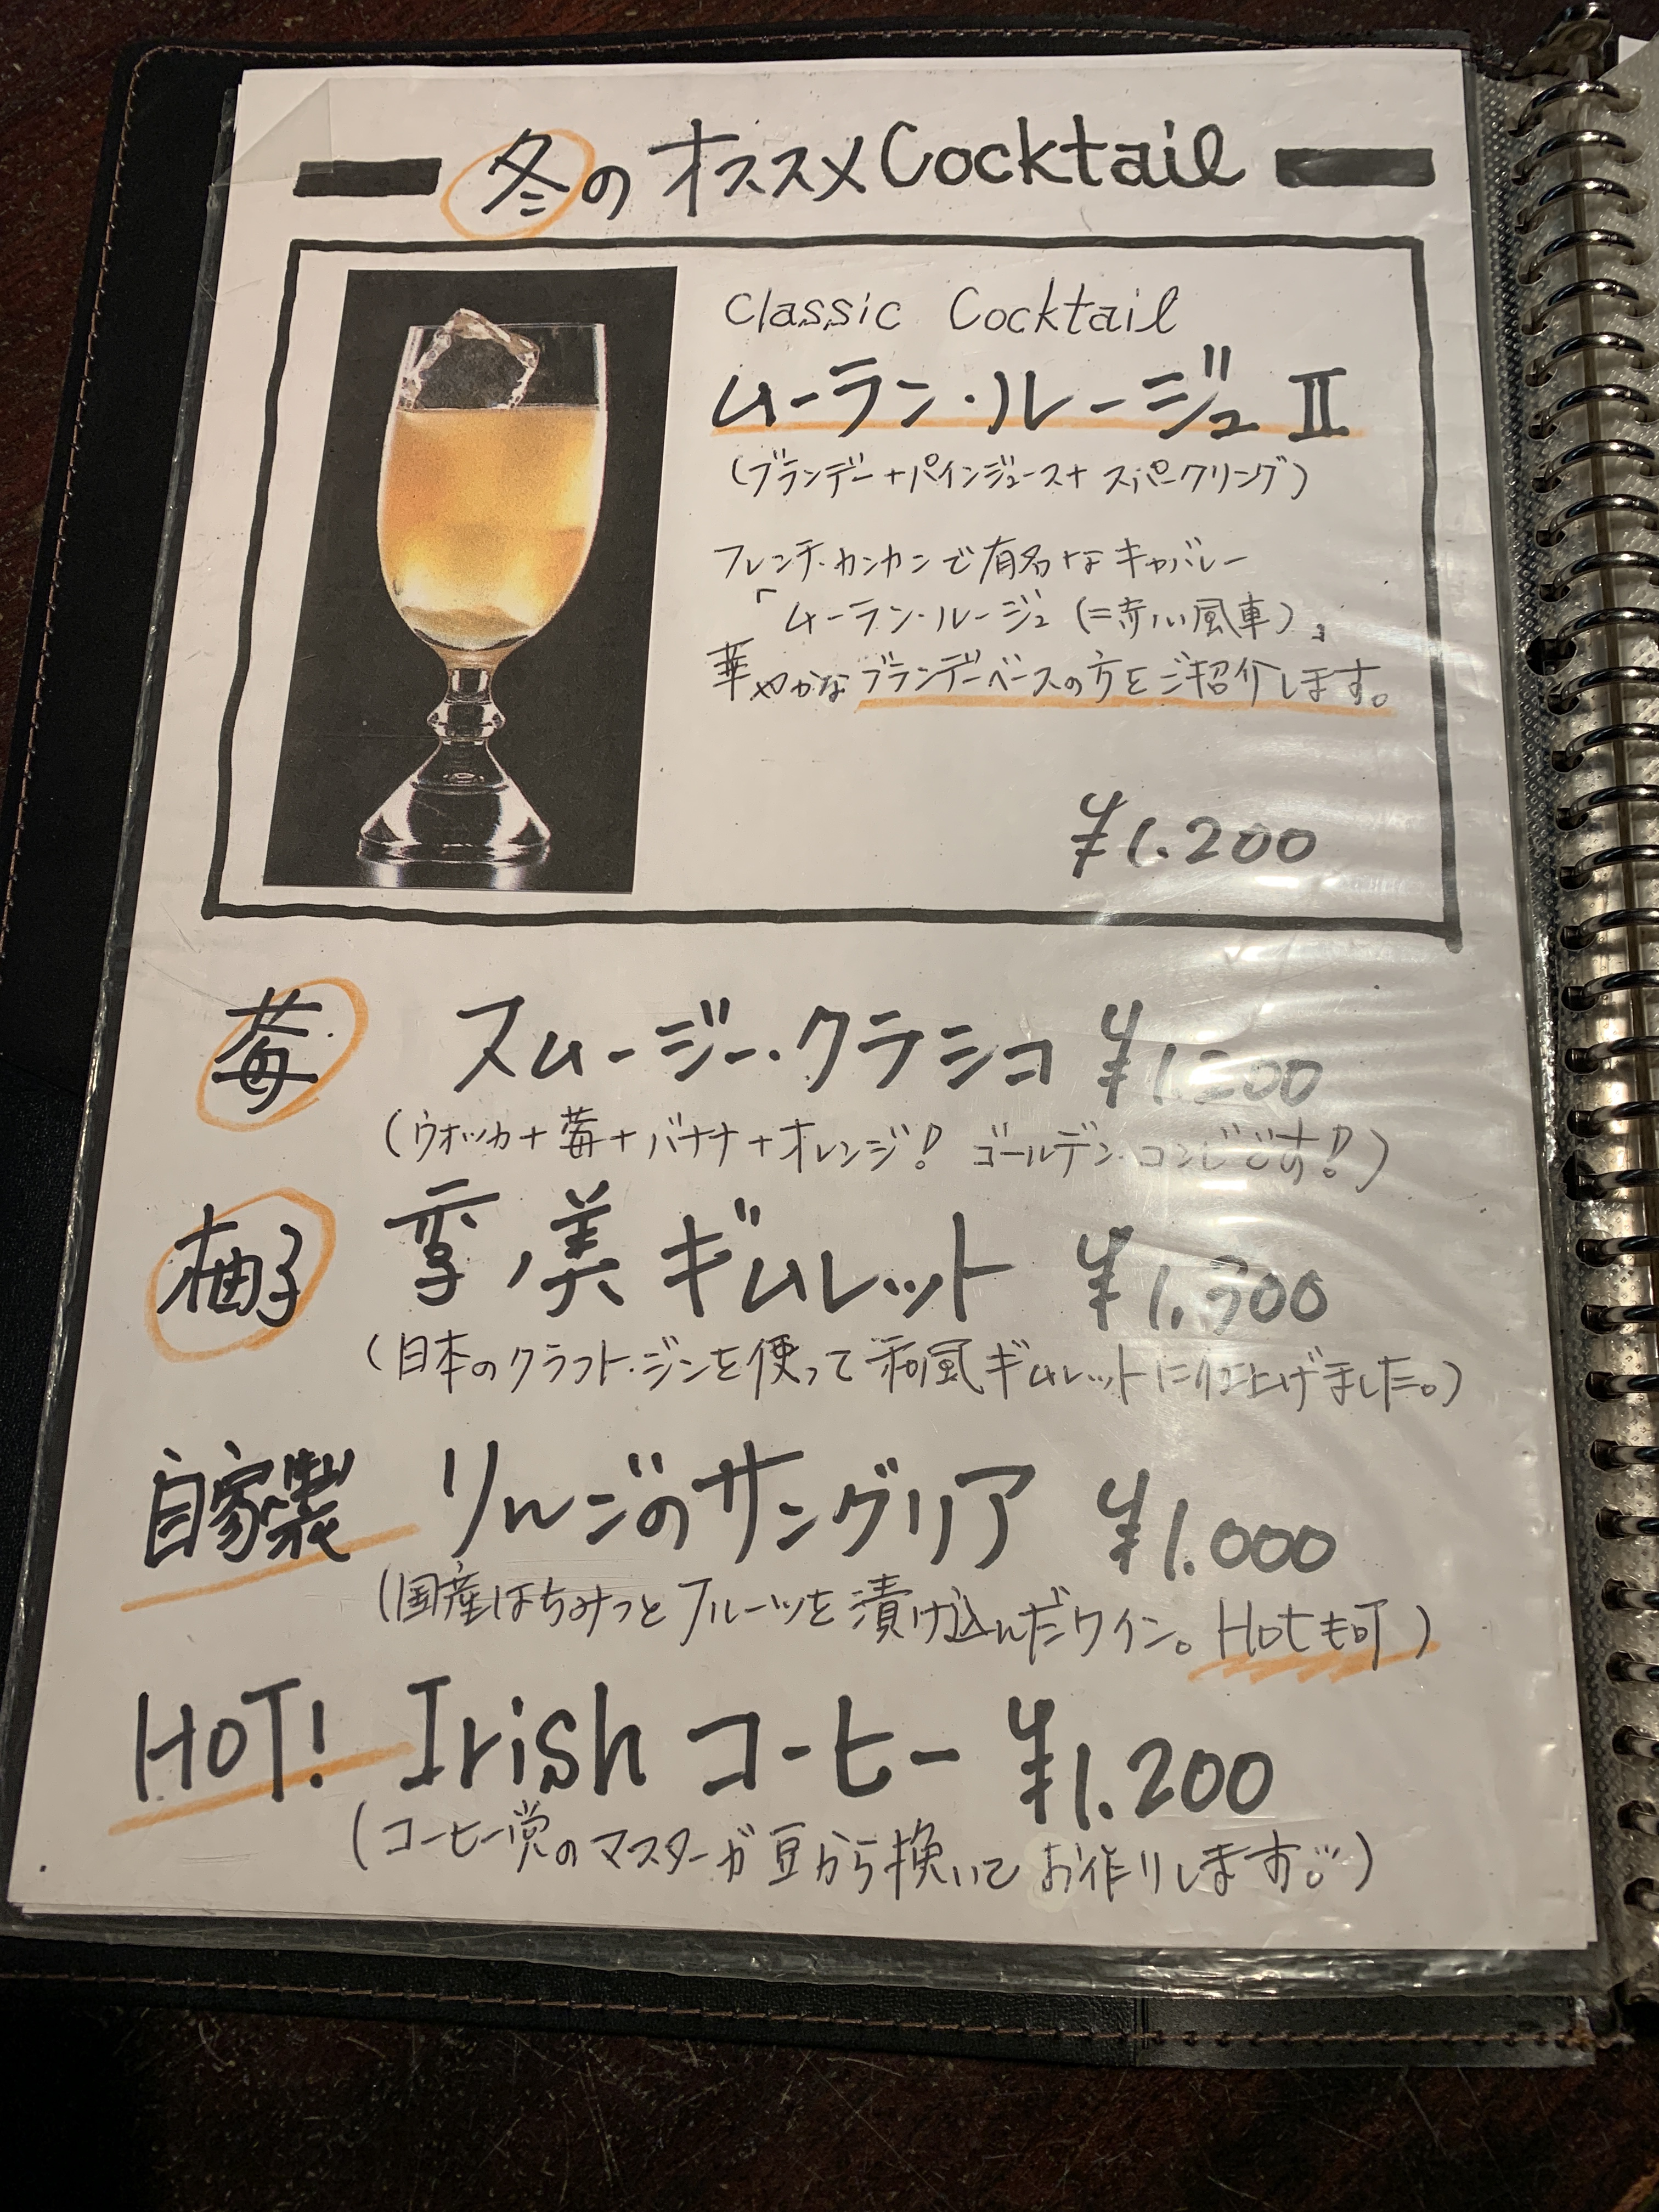 冬のオススメCocktail
Classic Cocktail
ムーラン・ルージュⅡ
(ブランデー+パインジュース+スパークリング)
フレンチ・カンカンで有名なキャバレー
「ムーラン・ルージュ(=赤い風車)」
華やかなブランデーベースの方をご紹介します。
¥1.200
苺 スムージー・クラシコ ¥1.200
(ウォッカ+苺+バナナ+オレンジ! ゴールデン・コンビです!)
柚子 季ノ美ギムレット ¥1.300
(日本のクラフト・ジンを使って和風ギムレットに仕上げました。)
自家製 リんごのサングリア ¥1.000
(国産はちみつとフルーツを漬け込んだワイン。Hotも可)
HOT! Irish コーヒー ¥1.200
(コーヒー党のマスターが豆から挽いてお作りします。)